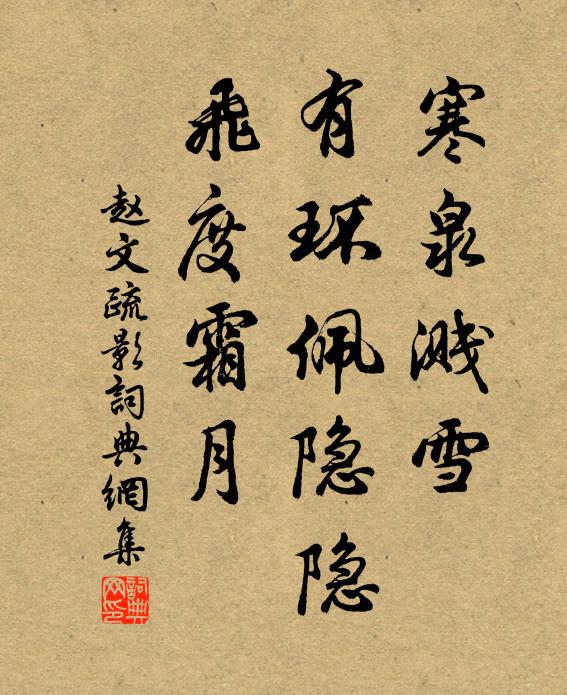 寒泉溅雪
有环佩隐隐
飞度霜月
赵文疏影词典網集
詞典网印